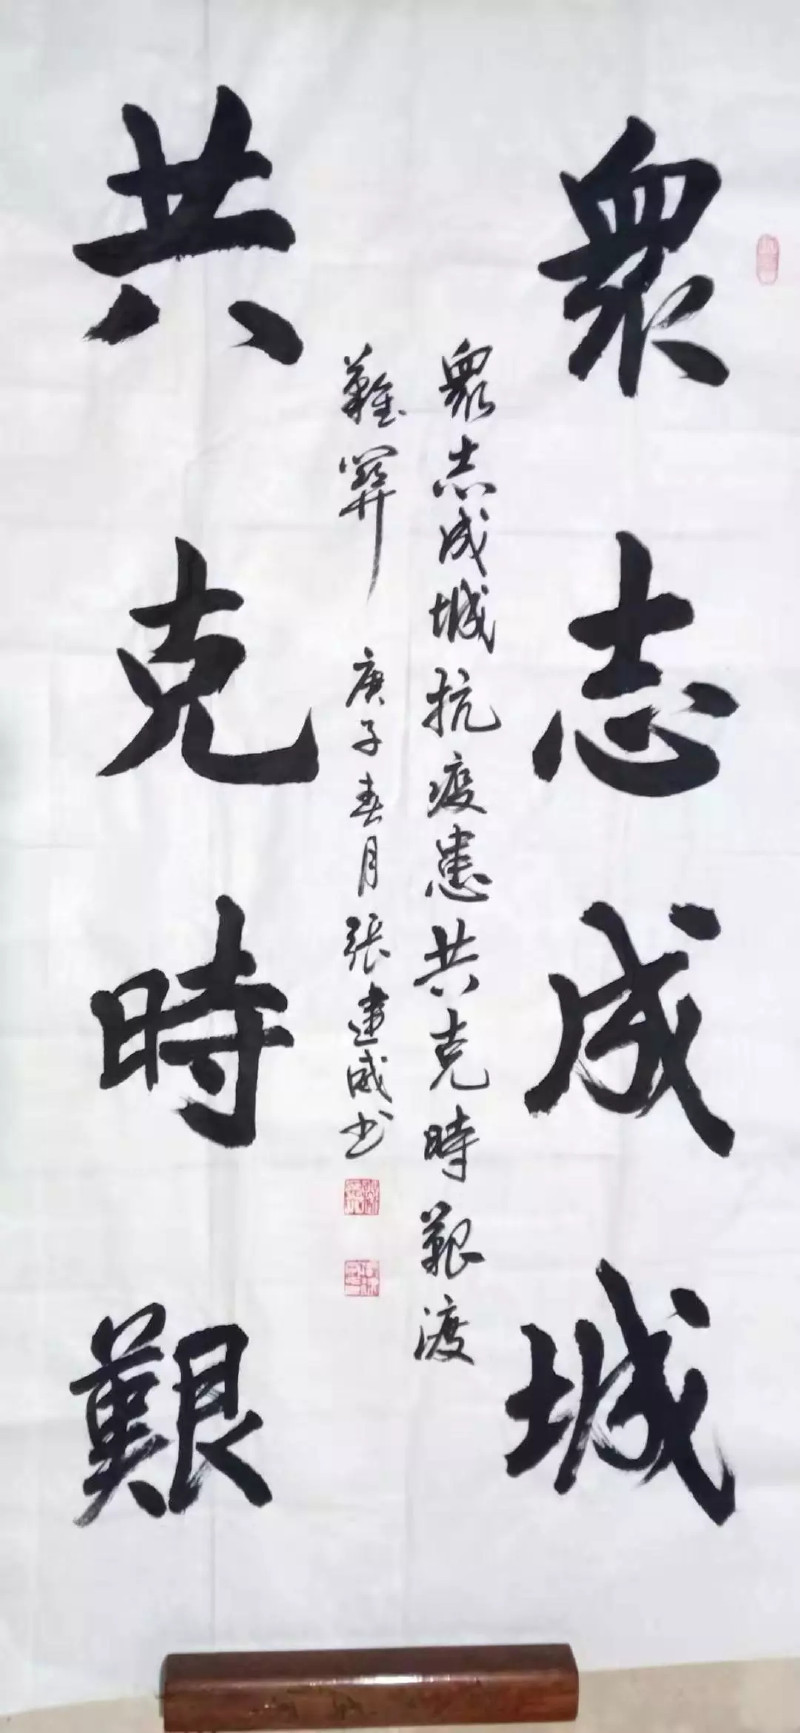 眾志成城
眾志成城抗疫患共克時艱渡
難關 庚子春月張建成书
共克時艱